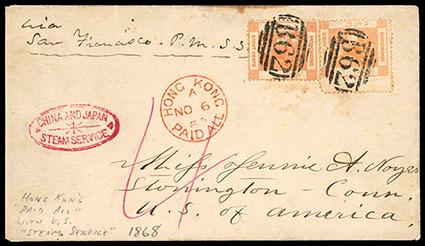 via
San Francisco. P. M. S. S.
B62
B62
HONG KONG
A
NO 6
PAID ALL
CHINA AND JAPAN
STEAM SERVICE
Miss Jennie A. Noyes
Stonington - Conn.
U. S. of America.
HONG KONG
"PAID ALL"
WITH U.S.
"STEAM SERVICE"
1868